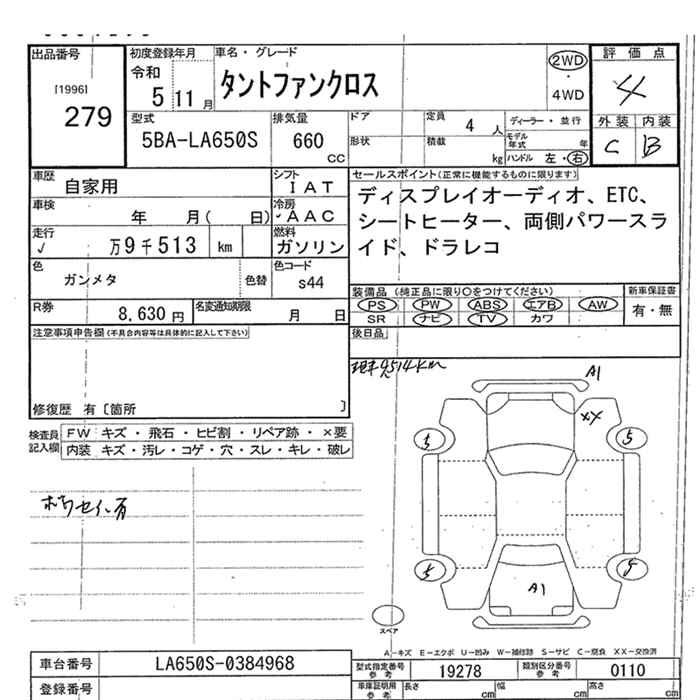 出品番号 [1996] 279
初度登録年月 令和 5 11 月
車名・グレード タントファンクロス
2WD ・ 4WD
評価点 4
外装 C 内装 B
型式 5BA-LA650S
排気量 660 CC
ドア 形状
定員 4 人
積載 kg
ディーラー・並行
モデル年式 年
ハンドル 左・右
車歴 自家用
シフト IAT
車検 年 月( 日)
冷房 AAC
走行 ✓ 万9千513 km
燃料 ガソリン
色 ガンメタ 色替
色コード s44
R券 8,630 円
名変通知期限 月 日
セールスポイント(正常に機能するものに限ります)
ディスプレイオーディオ、ETC、
シートヒーター、両側パワースラ
イド、ドラレコ
装備品 (純正品に限り○をつけてください)
PS PW ABS エアB AW
SR ナビ TV カワ
新車保証書 有・無
後日品
注意事項申告欄(不具合内容等は具体的に記入して下さい)
修復歴 有〔箇所 〕
検査員記入欄
FW キズ・飛石・ヒビ割・リペア跡・×要
内装 キズ・汚レ・コゲ・穴・スレ・キレ・破レ
9514km
A1
XX
5 5
5 5
A1
スペア
A-キズ E-エクボ U-凹み W-補修跡 S-サビ C-腐食 XX-交換済
車台番号 LA650S-0384968
型式指定番号 参考 19278
類別区分番号 参考 0110
登録番号
車庫証明用 参考 長さ cm 幅 cm 高さ cm